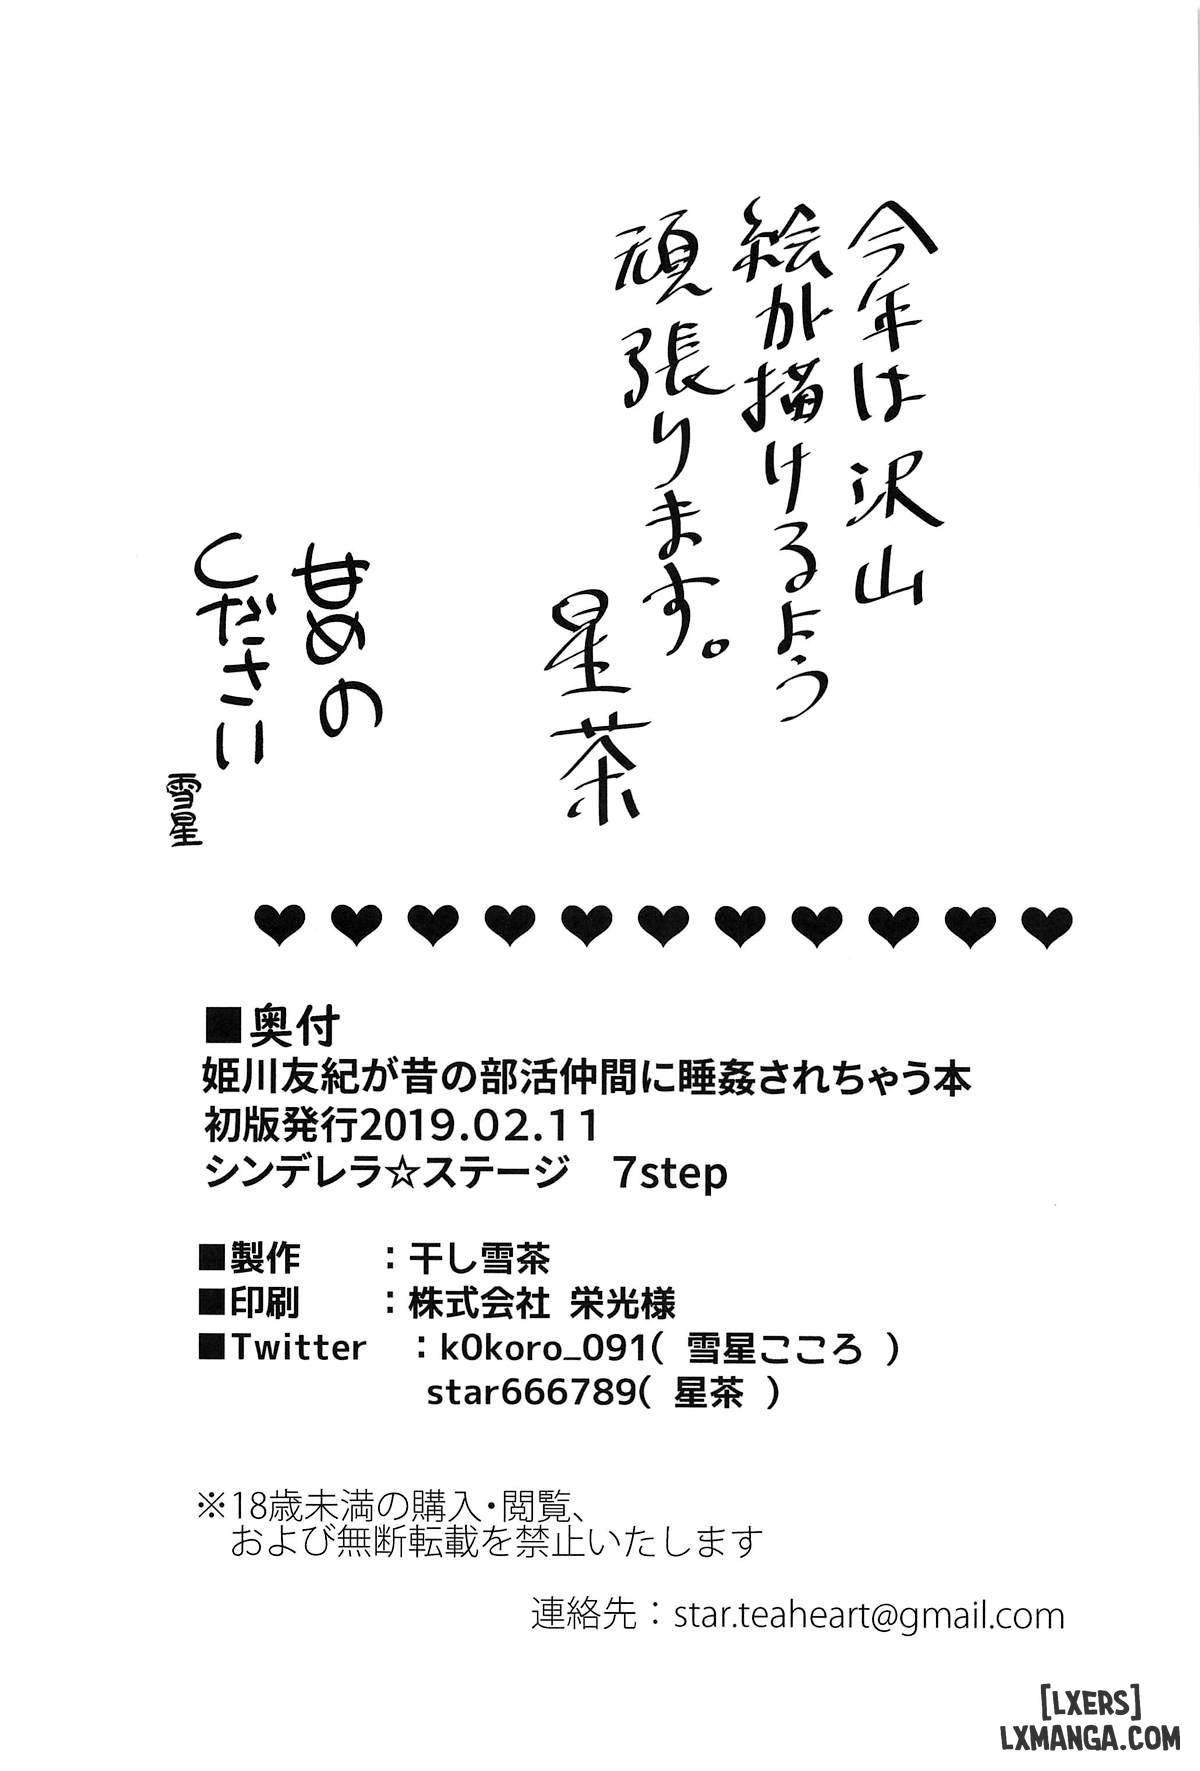 今年は沢山
絵が描けるよう
頑張ります。
星茶
甘めの
ください
雪星
■奥付
姫川友紀が昔の部活仲間に睡姦されちゃう本
初版発行2019.02.11
シンデレラ☆ステージ　7step
■製作　　：干し雪茶
■印刷　　：株式会社 栄光様
■Twitter　：k0koro_091( 雪星こころ )
star666789( 星茶 )
※18歳未満の購入・閲覧、
および無断転載を禁止いたします
連絡先：star.teaheart@gmail.com
[LXERS]
LXMANGA.COM